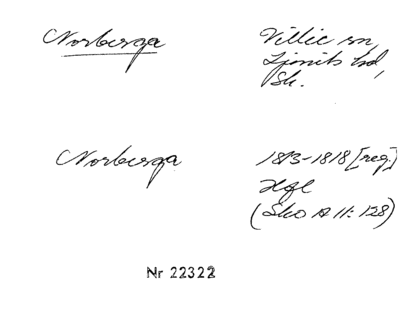 Norberga
Villie sn,
Ljunits hd,
Sk.
Norberga
1813-1818 [reg.]
Hgl
(Sko A II: 128)
Nr 22322